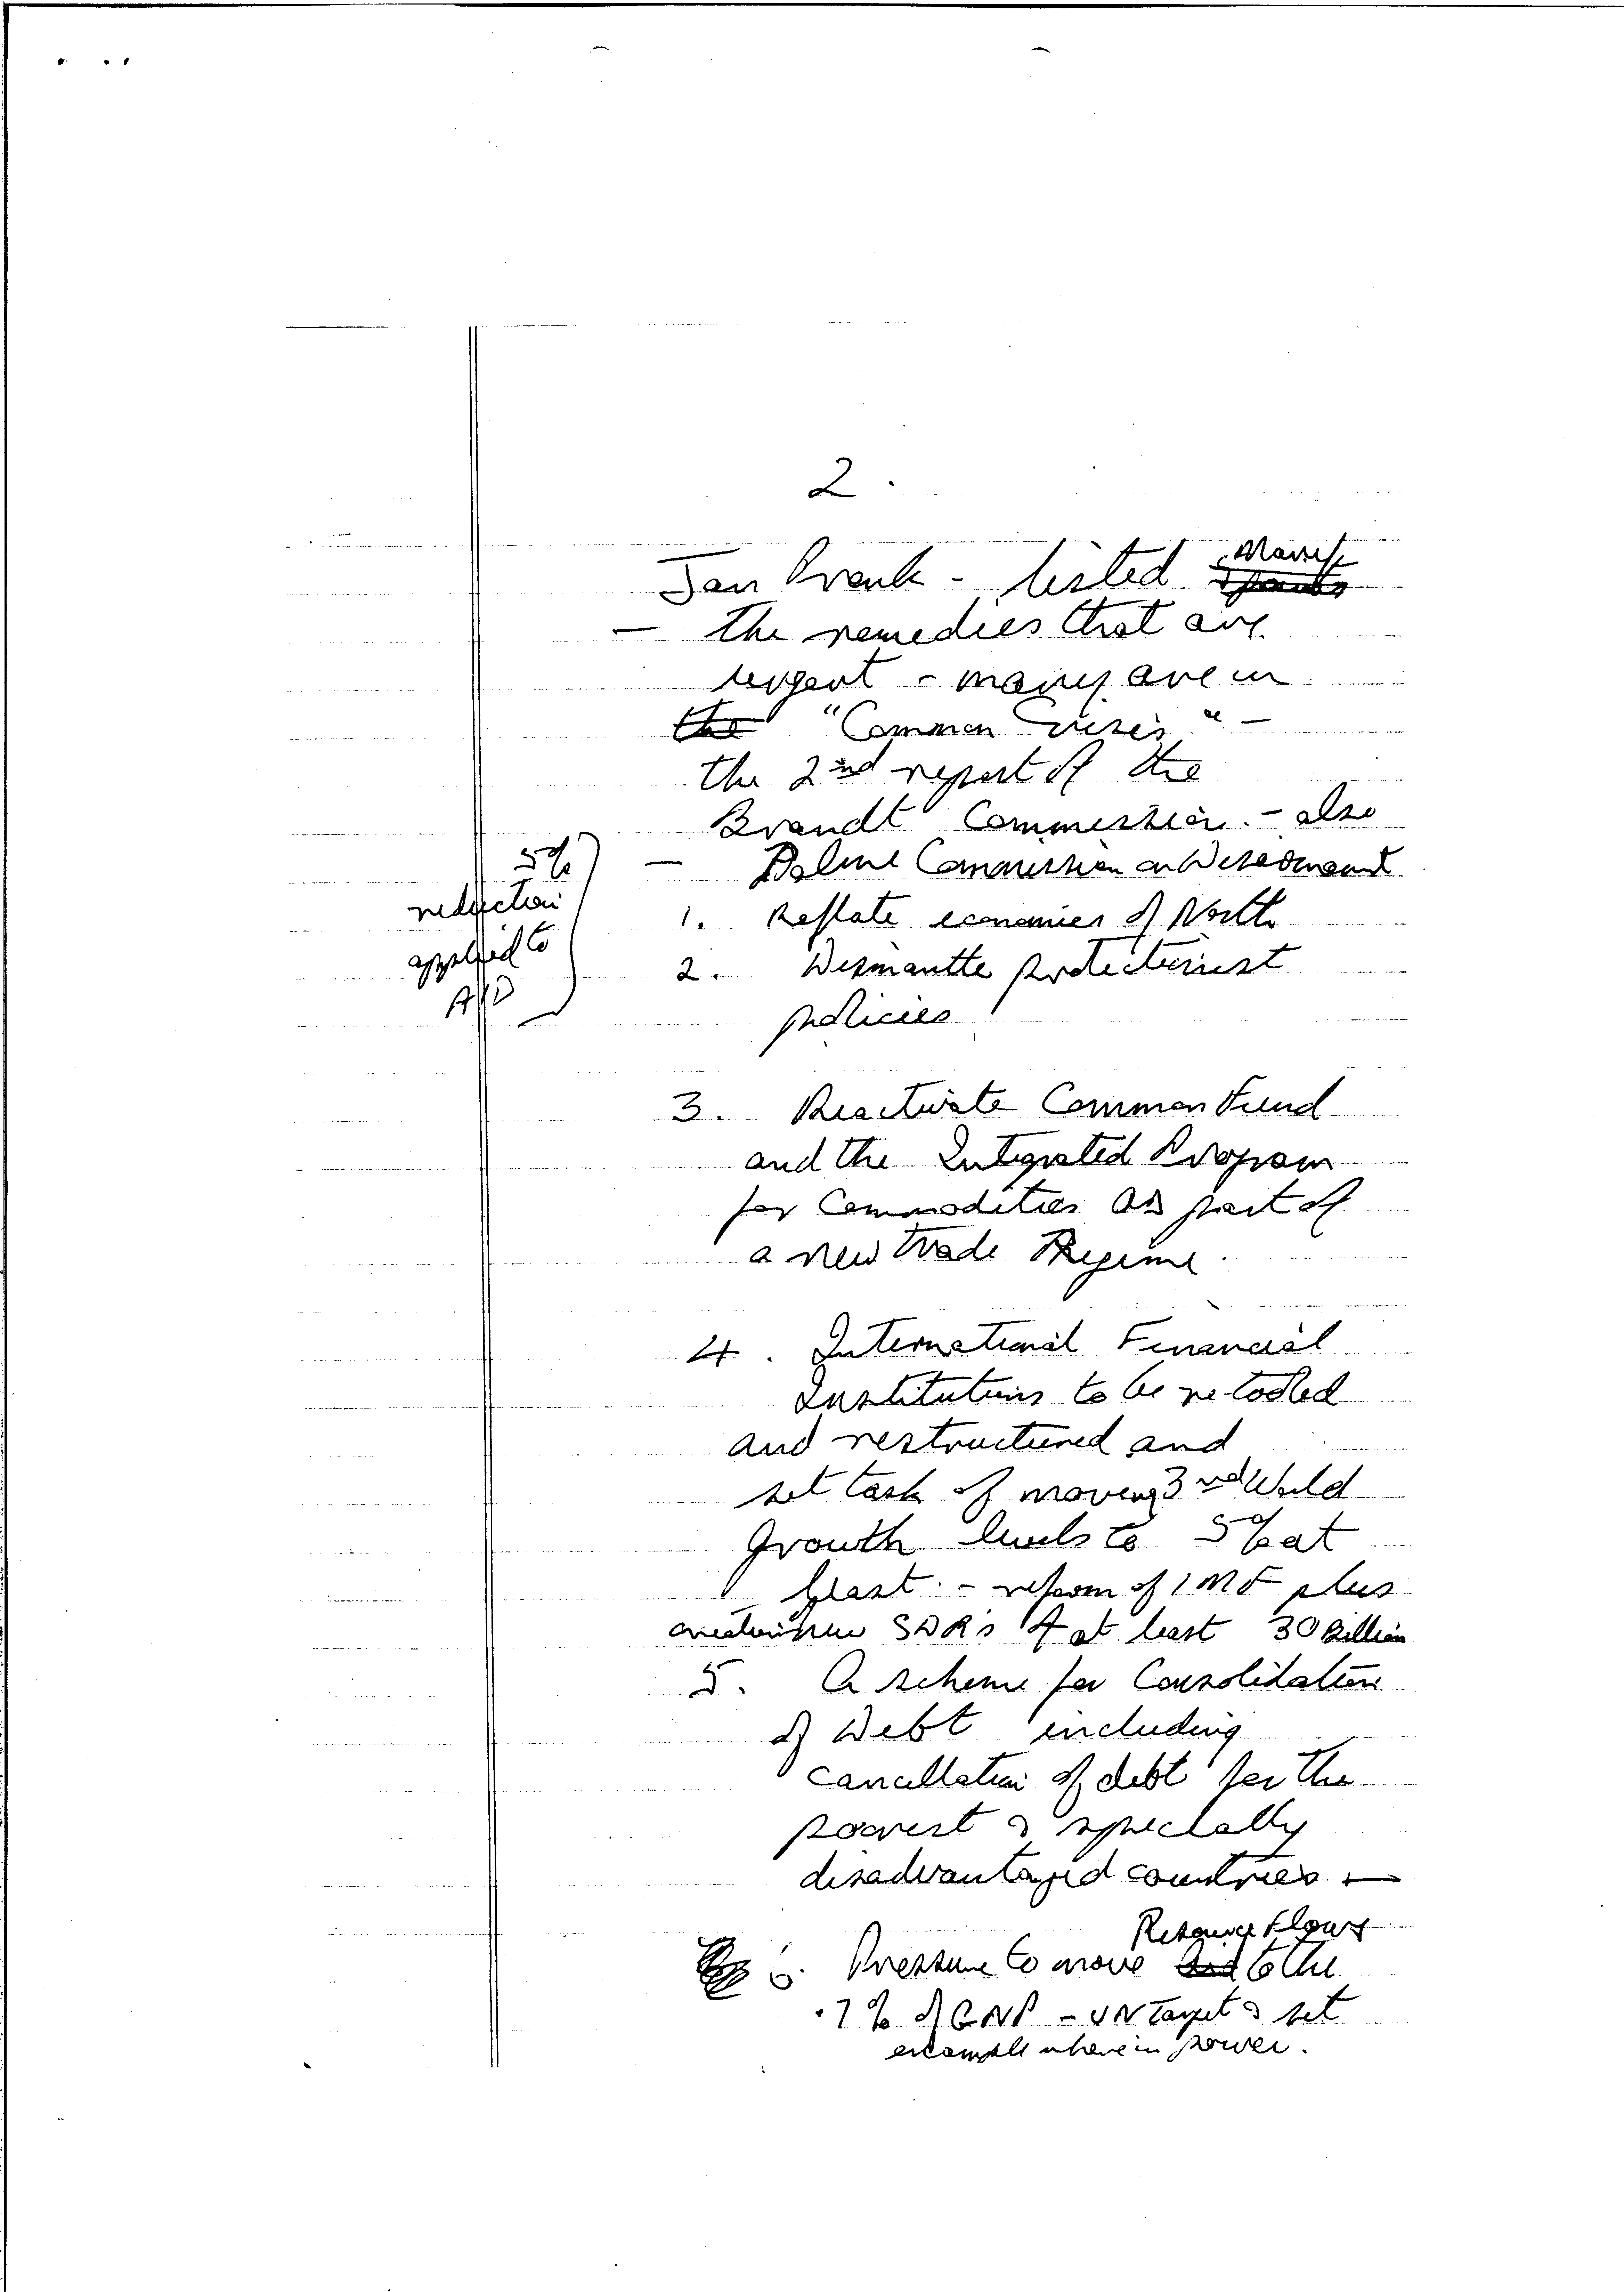 2.
Jan Pronk - listed Manif
- The remedies that are
urgent - many are in
the "Common Crisis" -
the 2nd report of the
Brandt Commission. - also
- Palme Commission on Disarmament
5%
reduction
applied to
AID
1. Reflate economies of North
2. Dismantle protectionist
policies
3. Reactivate Common Fund
and the Integrated Program
for Commodities as part of
a new Trade Regime.
4. International Financial
Institutions to be retooled
and restructured and
set task of moving 3rd World
Growth levels to 5% at
least. - reform of IMF plus
SDRs of at least 30 Billion
5. A scheme for Consolidation
of Debt including
cancellation of debt for the
poorest & specially
disadvantaged countries -
Resource flows
6. Pressure to move and to the
.7% of GNP - UN target & set
example where in power.